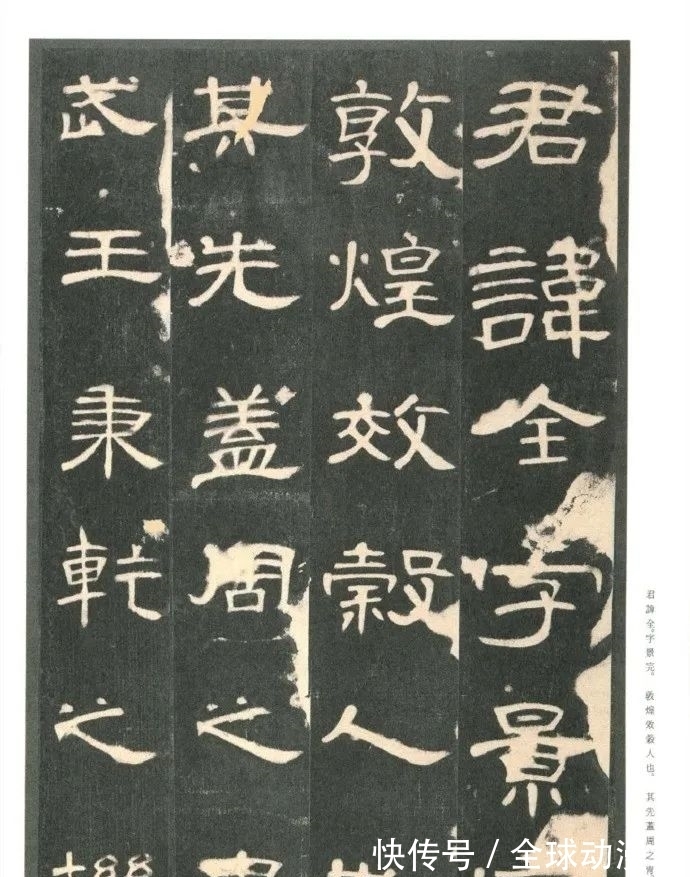 君諱全字景
敦煌效穀人
其先蓋周之
武王秉乾之
君諱全。字景完。敦煌效穀人也。其先蓋周之胄。
快传号 / 全球动